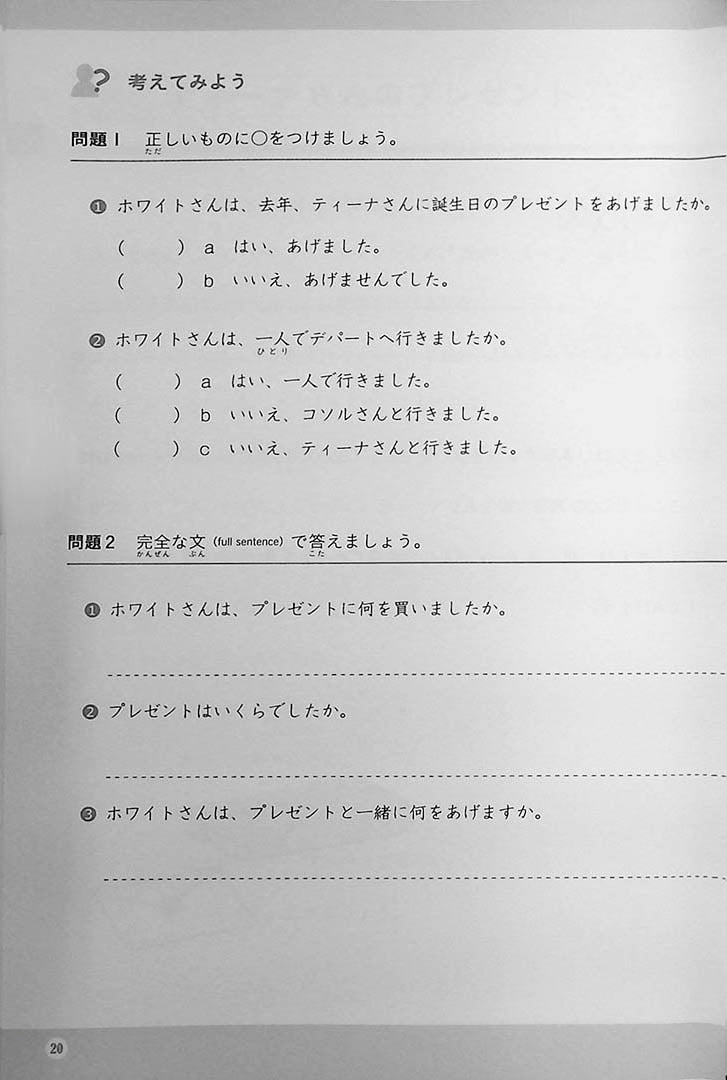 考えてみよう
問題1 正しいものに○をつけましょう。
ただ
❶ ホワイトさんは、去年、ティーナさんに誕生日のプレゼントをあげましたか。
( ) a はい、あげました。
( ) b いいえ、あげませんでした。
❷ ホワイトさんは、一人でデパートへ行きましたか。
ひとり
( ) a はい、一人で行きました。
( ) b いいえ、コソルさんと行きました。
( ) c いいえ、ティーナさんと行きました。
問題2 完全な文 (full sentence) で答えましょう。
かんぜん ぶん こた
❶ ホワイトさんは、プレゼントに何を買いましたか。
❷ プレゼントはいくらでしたか。
❸ ホワイトさんは、プレゼントと一緒に何をあげますか。
20